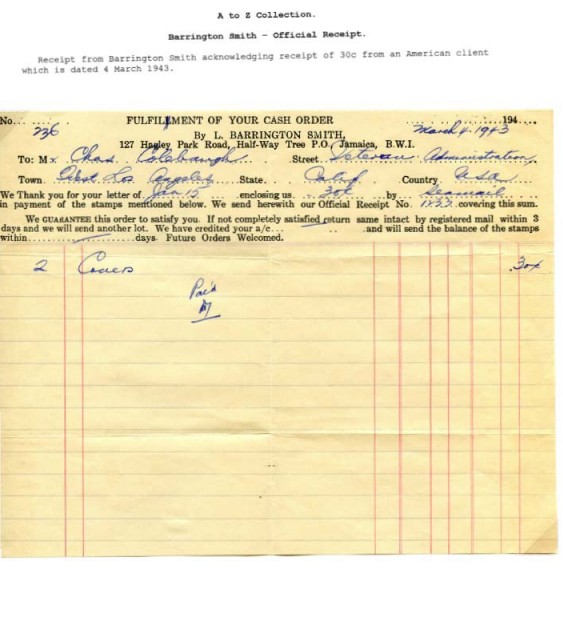 A to Z Collection.
Barrington Smith – Official Receipt.
Receipt from Barrington Smith acknowledging receipt of 30c from an American client
which is dated 4 March 1943.
No. 236 FULFILLMENT OF YOUR CASH ORDER 194
By L. BARRINGTON SMITH, March 4. 1943
127 Hagley Park Road, Half-Way Tree P.O., Jamaica, B.W.I.
To: Mr Chas. Street Veteran Administration,
Town West Los Angeles State Calif Country USA
We Thank you for your letter of Jan 15 enclosing us 30¢ by Seamail
in payment of the stamps mentioned below. We send herewith our Official Receipt No. covering this sum.
We GUARANTEE this order to satisfy you. If not completely satisfied return same intact by registered mail within 3
days and we will send another lot. We have credited your a/c and will send the balance of the stamps
within days Future Orders Welcomed.
2 Covers .30¢
Paid